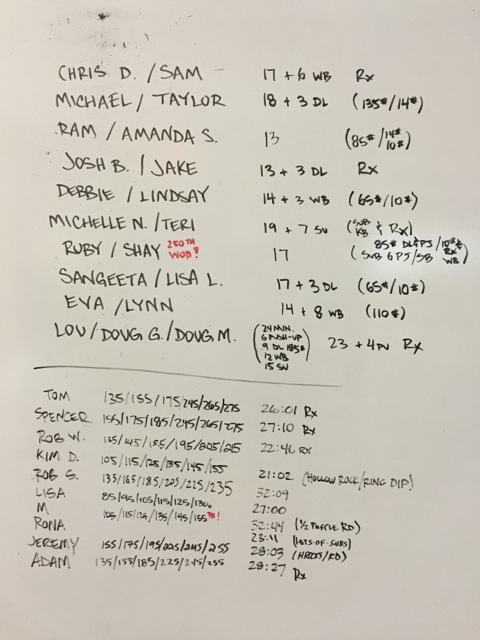 CHRIS D. / SAM 17 + 6 WB Rx
MICHAEL / TAYLOR 18 + 3 DL (135# / 14#)
RAM / AMANDA S. 13 (85# / 14# 10#)
JOSH B. / JAKE 13 + 3 DL Rx
DEBBIE / LINDSAY 14 + 3 WB (65# / 10#)
MICHELLE N. / TERI 19 + 7 SU (SUB KB & Rx)
RUBY / SHAY 250TH WOD! 17
SANGEETA / LISA L. 17 + 3 DL (65# / 10#)
EVA / LYNN 14 + 8 WB (110#)
LOU / DOUG G. / DOUG M. (24 MIN. 6 PUSH-UP 9 DL 185# 12 WB 15 SU) 23 + 4 PU Rx
TOM 135/155/175/245/265/275 26:01 Rx
SPENCER 155/175/185/245/265/275 27:10 Rx
ROB W. 135/145/155/195/205/215 22:46 Rx
KIM D. 105/115/125/135/145/155
ROB S. 135/165/185/205/225/235 21:02 (HOLLOW ROCK/RING DIP)
LISA 85/95/105/115/125/130 32:09
M 105/115/125/135/145/155 PR! 27:00
RONA 32:44
JEREMY 155/175/195/225/245/255 23:11 (LOTS-OF-SUBS)
ADAM 135/155/185/225/245/255 28:03
28:27 Rx